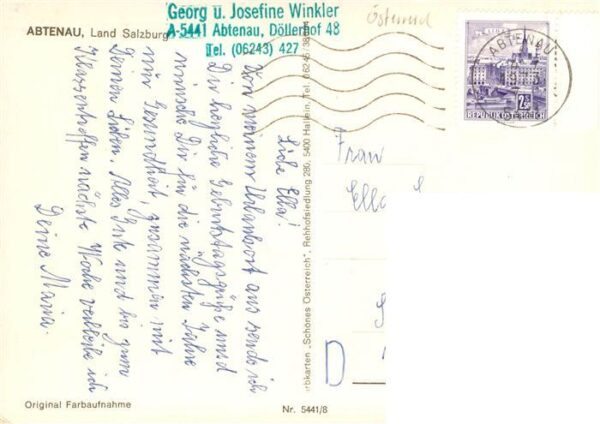 ABTENAU, Land Salzburg
Georg u. Josefine Winkler
A-5441 Abtenau, Döllerhof 48
Tel. (06243) 427
Österreich
ABTENAU
2.50
REPUBLIK ÖSTERREICH
Liebe Ella!
Von meinem Urlaubsort aus sende ich
Dir herzliche Geburtstagsgrüße und
wünsche Dir für die nächsten Jahre
nur Gesundheit, zusammen mit
Deinen Lieben. Alles Gute und bis zum
Klassentreffen nächste Woche verbleibe ich
Deine Maria.
rbkarten „Schönes Österreich", Rehhofsiedlung 286, 5400 Hallein, Tel. 06245/
Frau
Ella
D
Original Farbaufnahme
Nr. 5441/8